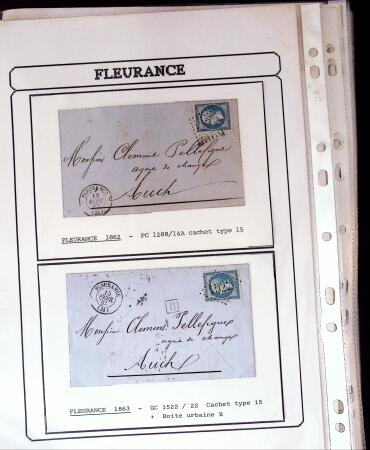 FLEURANCE
Monsieur Clement Pellefigue
agent de change
Auch
FLEURANCE
18
(31)
FLEURANCE 1862 - PC 1288/14A cachet type 15
FLEURANCE
15
(31)
B
Monsieur Clement Pellefigue
agent de change
Auch
FLEURANCE 1863 - GC 1522 / 22 Cachet type 15
+ Boite urbaine B